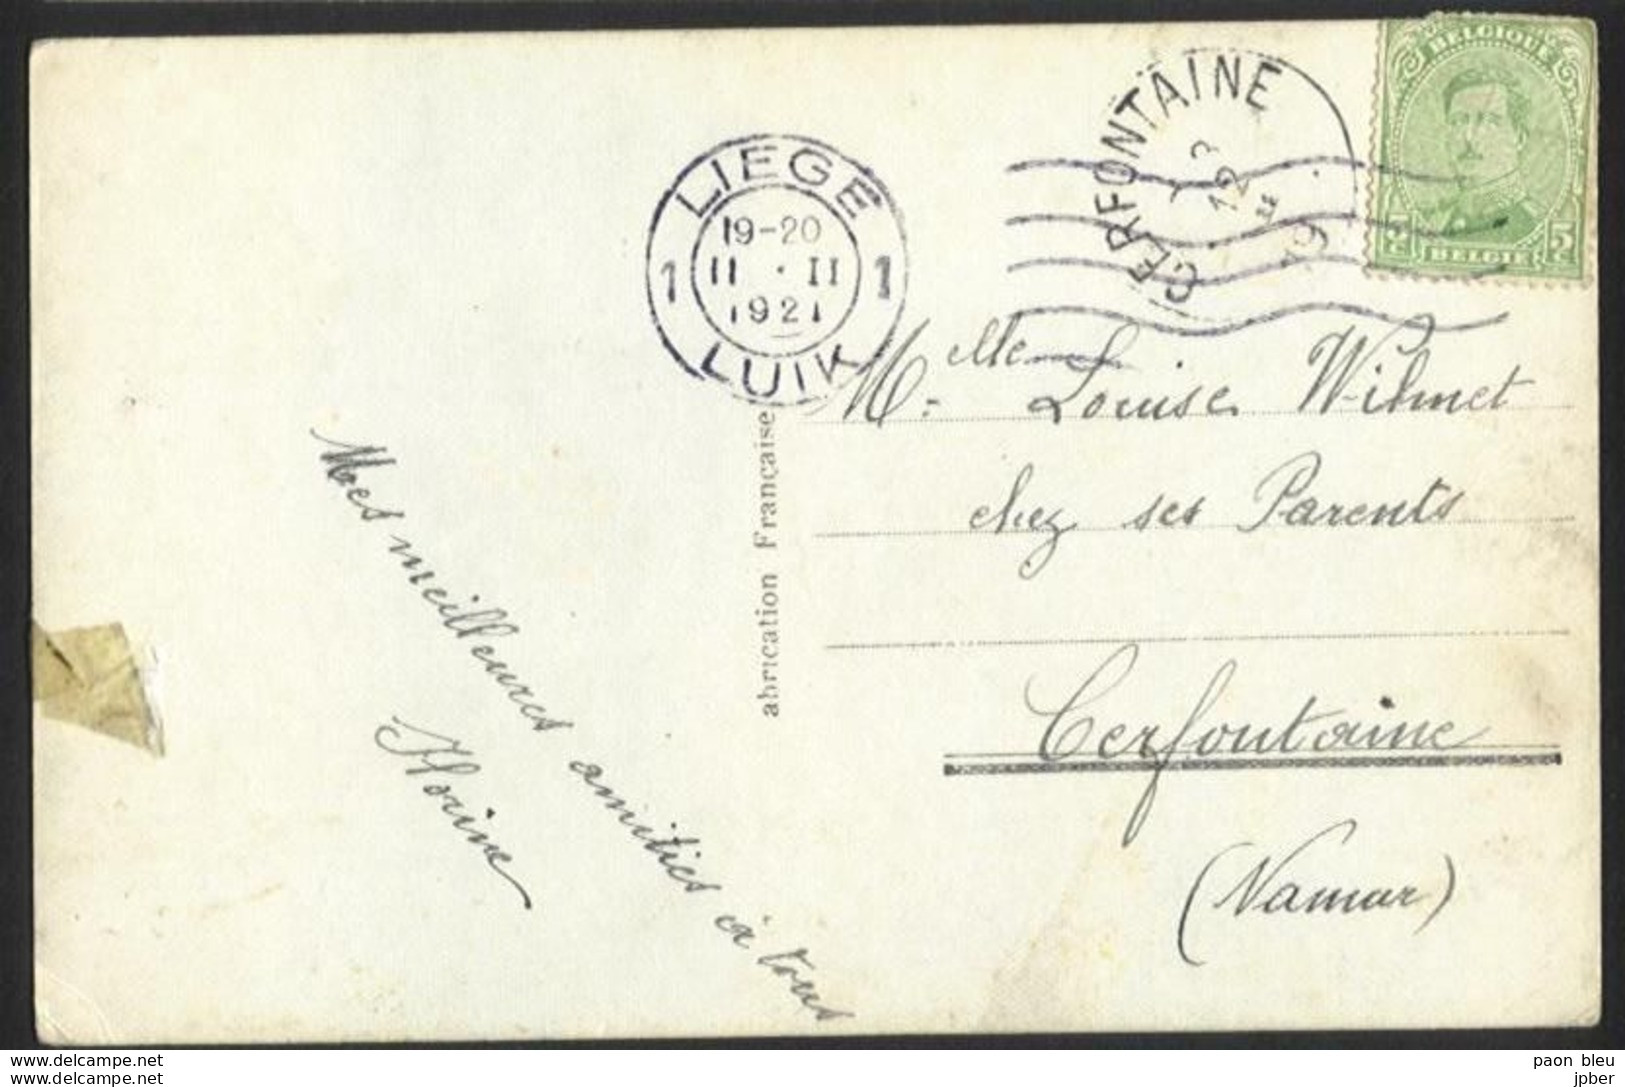 BELGIQUE
5c 5c
BELGIE
CERFONTAINE
12
19
LIEGE
19-20
1 11 · II 1
1921
LUIK
Melle Louise Wilmet
chez ses Parents
Cerfontaine
(Namur)
abrication Française
Mes meilleures amitiés à tous
Florine
delcampe.net
delcampe.net
paon_bleu
jpber